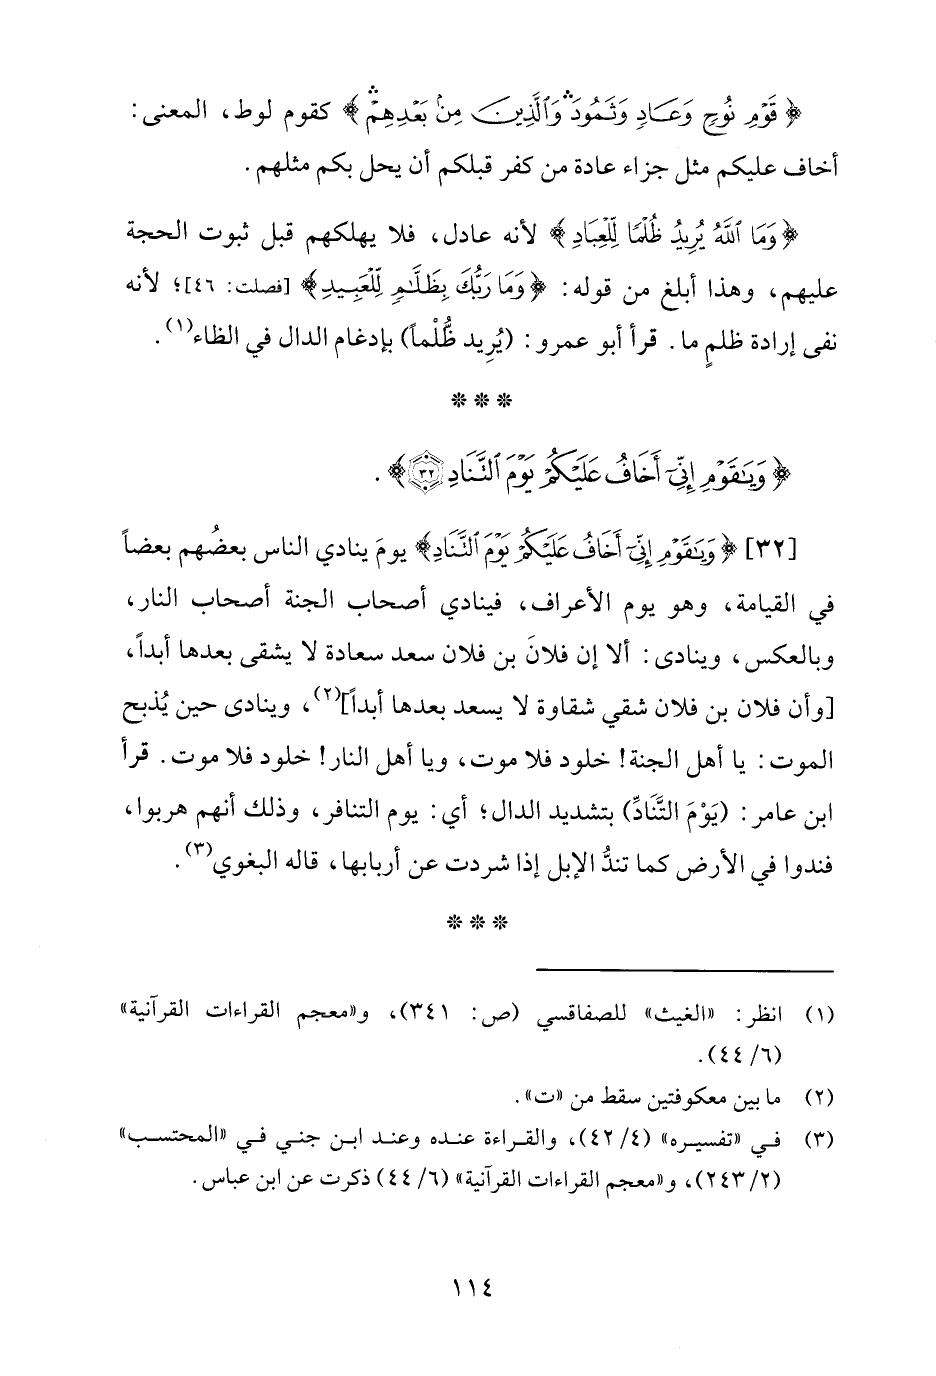 ﴿قَوْمِ نُوحٍ وَعَادٍ وَثَمُودَ وَٱلَّذِينَ مِنۢ بَعْدِهِمْ﴾ كقوم لوط، المعنى:
أخاف عليكم مثل جزاء عادة من كفر قبلكم أن يحل بكم مثلهم.
﴿وَمَا ٱللَّهُ يُرِيدُ ظُلْمًا لِّلْعِبَادِ﴾ لأنه عادل، فلا يهلكهم قبل ثبوت الحجة
عليهم، وهذا أبلغ من قوله: ﴿وَمَا رَبُّكَ بِظَلَّٰمٍ لِّلْعَبِيدِ﴾ [فصلت: ٤٦]؛ لأنه
نفى إرادة ظلمٍ ما. قرأ أبو عمرو: (يُرِيد ظُّلْماً) بإدغام الدال في الظاء(١).
* * *
﴿وَيَٰقَوْمِ إِنِّىٓ أَخَافُ عَلَيْكُمْ يَوْمَ ٱلتَّنَادِ ٣٢﴾.
[٣٢] ﴿وَيَٰقَوْمِ إِنِّىٓ أَخَافُ عَلَيْكُمْ يَوْمَ ٱلتَّنَادِ﴾ يومَ ينادي الناس بعضُهم بعضاً
في القيامة، وهو يوم الأعراف، فينادي أصحاب الجنة أصحاب النار،
وبالعكس، وينادى: ألا إن فلانَ بن فلان سعد سعادة لا يشقى بعدها أبداً،
[وأن فلان بن فلان شقي شقاوة لا يسعد بعدها أبداً](٢)، وينادى حين يُذبح
الموت: يا أهل الجنة! خلود فلا موت، ويا أهل النار! خلود فلا موت. قرأ
ابن عامر: (يَوْمَ التَّنَادِّ) بتشديد الدال؛ أي: يوم التنافر، وذلك أنهم هربوا،
فندوا في الأرض كما تندُّ الإبل إذا شردت عن أربابها، قاله البغوي(٣).
* * *
(١) انظر: «الغيث» للصفاقسي (ص: ٣٤١)، و«معجم القراءات القرآنية»
(٦/ ٤٤).
(٢) ما بين معكوفتين سقط من «ت».
(٣) في «تفسيره» (٤/ ٤٢)، والقراءة عنده وعند ابن جني في «المحتسب»
(٢/ ٢٤٣)، و«معجم القراءات القرآنية» (٦/ ٤٤) ذكرت عن ابن عباس.
١١٤